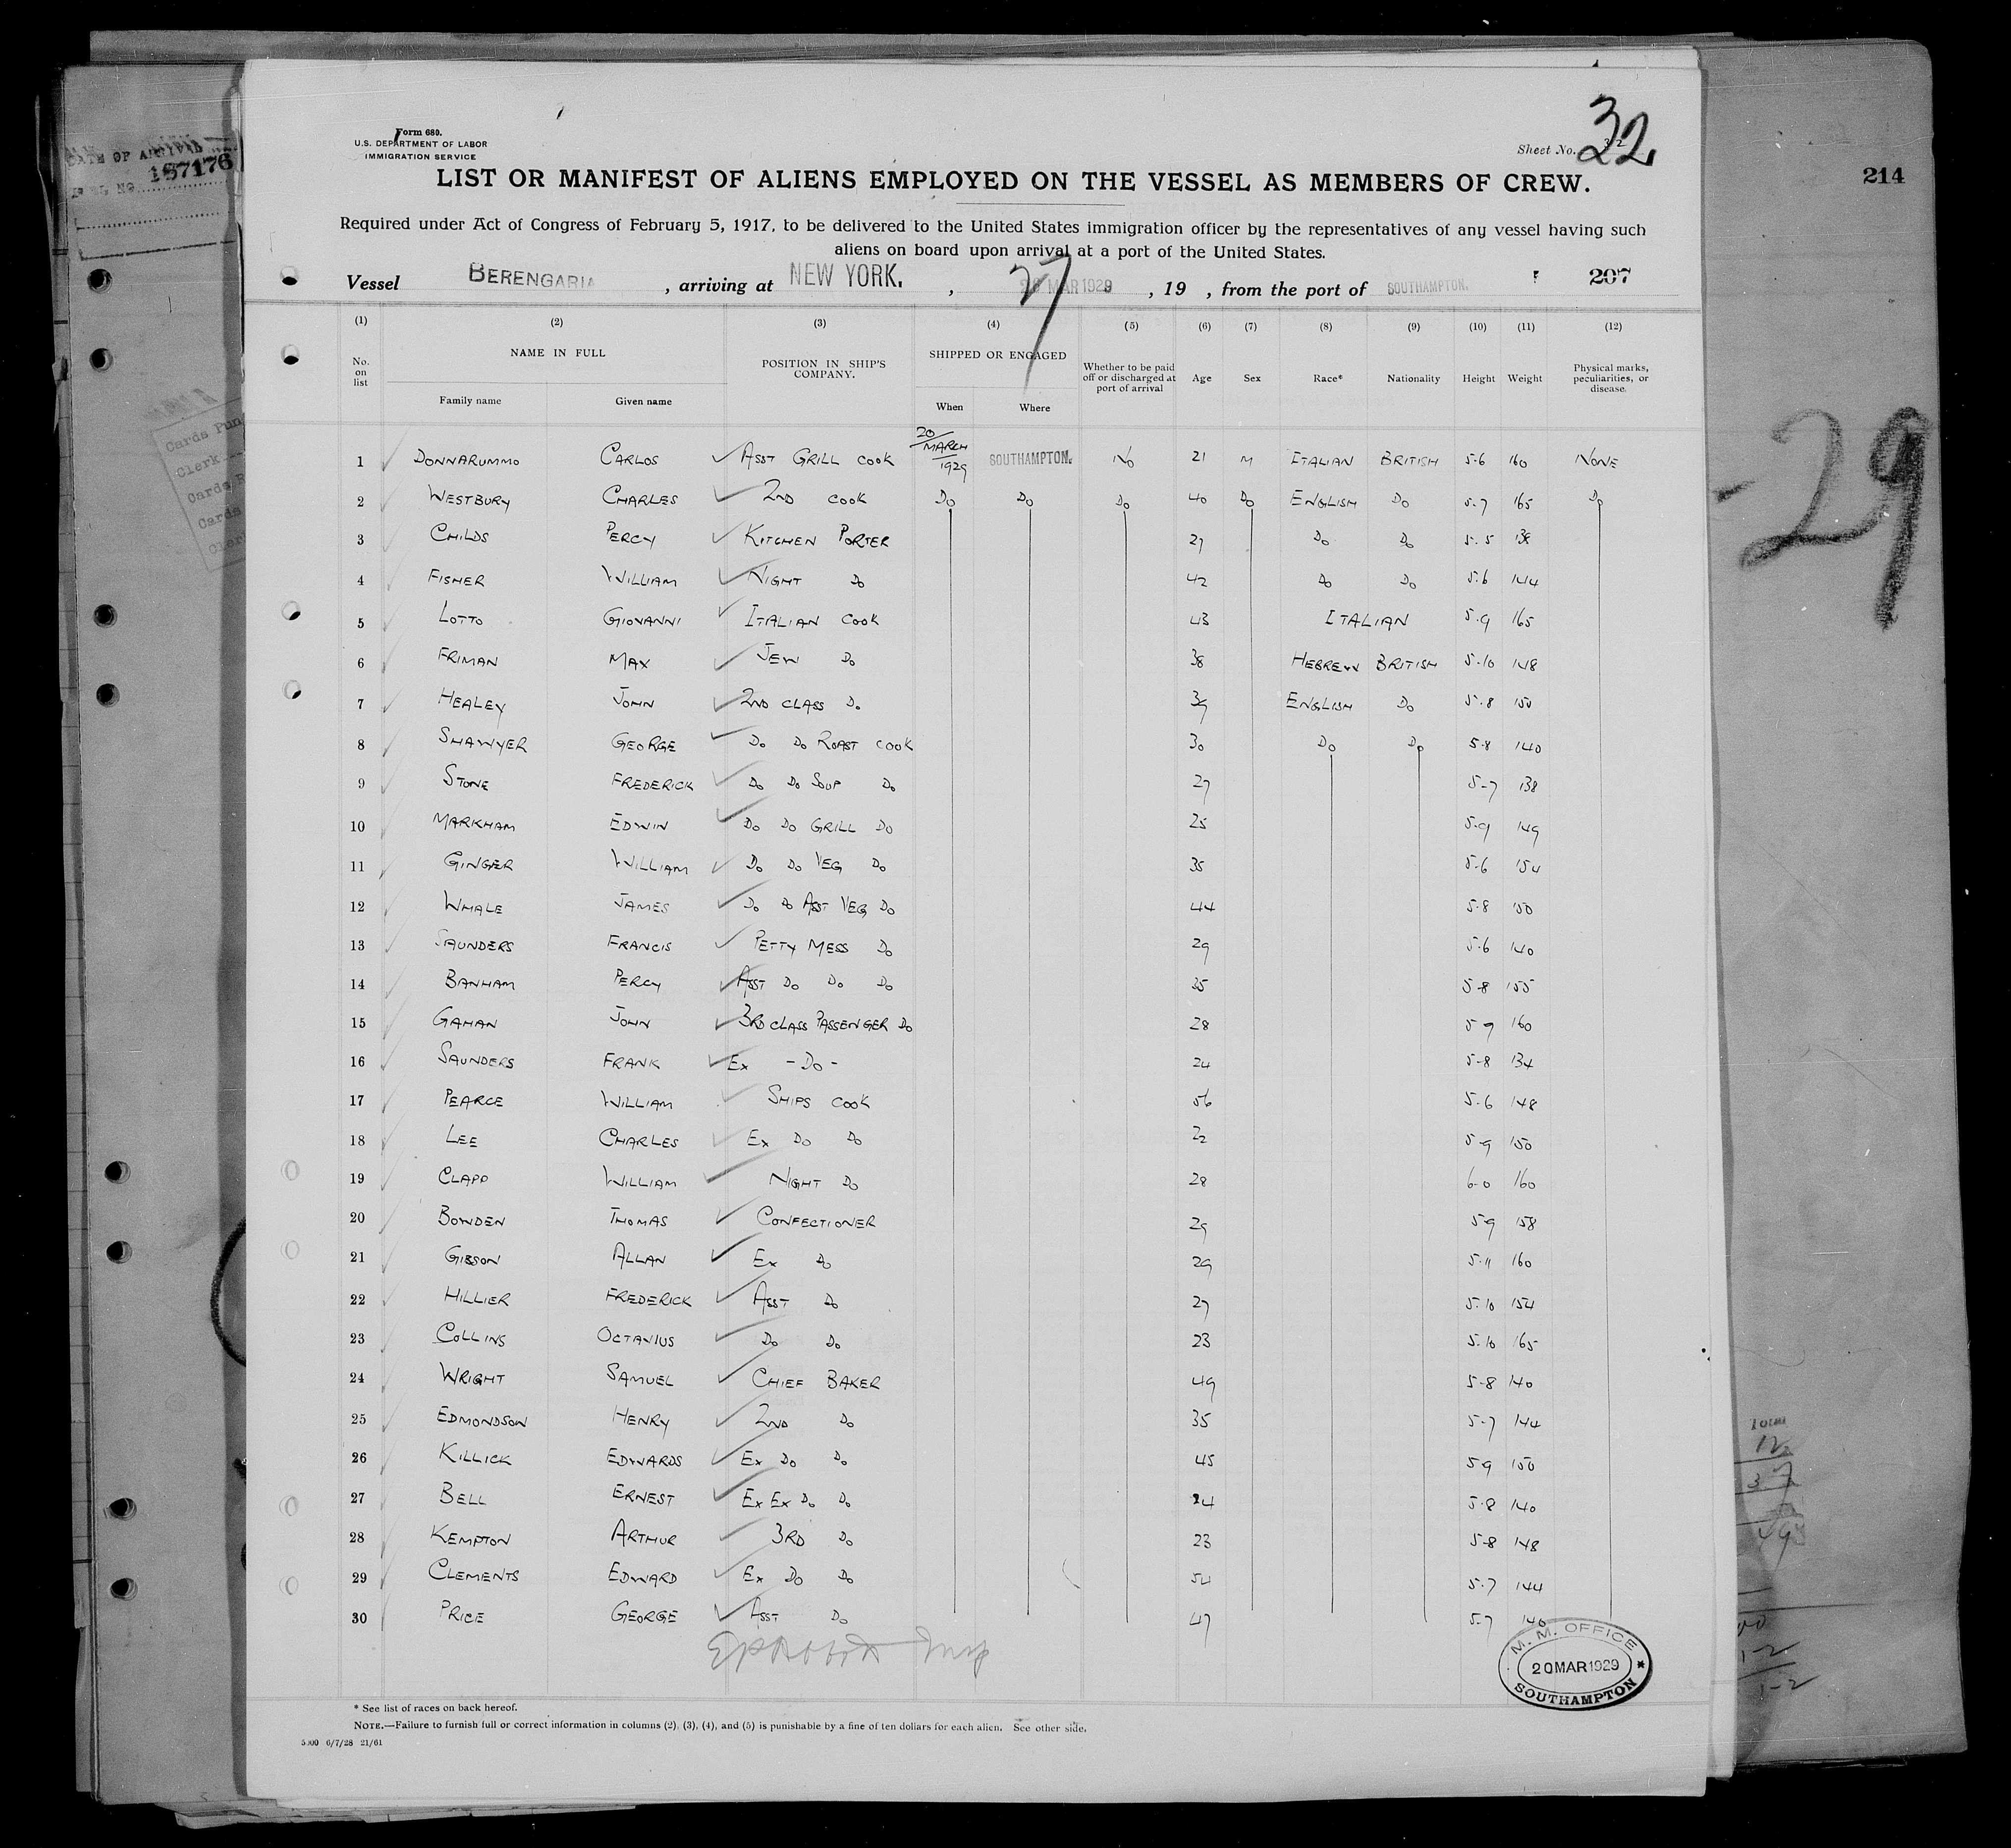 32
Form 689.
U.S. DEPARTMENT OF LABOR
IMMIGRATION SERVICE
Sheet No. 32
LIST OR MANIFEST OF ALIENS EMPLOYED ON THE VESSEL AS MEMBERS OF CREW.
Required under Act of Congress of February 5, 1917, to be delivered to the United States immigration officer by the representatives of any vessel having such
aliens on board upon arrival at a port of the United States.
Vessel BERENGARIA, arriving at NEW YORK., 27 MAR 1929, 19 , from the port of SOUTHAMPTON. 207
(1) (2) (3) (4) (5) (6) (7) (8) (9) (10) (11) (12)
No. on list NAME IN FULL Family name Given name POSITION IN SHIP'S COMPANY. SHIPPED OR ENGAGED When Where Whether to be paid off or discharged at port of arrival Age Sex Race* Nationality Height Weight Physical marks, peculiarities, or disease.
1 DONNARUMMO CARLOS ASST GRILL COOK 20/MARCH/1929 SOUTHAMPTON. NO 21 M ITALIAN BRITISH 5-6 160 NONE
2 WESTBURY CHARLES 2ND COOK DO DO DO 40 DO ENGLISH DO 5-7 165 DO
3 CHILDS PERCY KITCHEN PORTER 27 DO DO 5.5 138
4 FISHER WILLIAM NIGHT DO 42 DO DO 5.6 144
5 LOTTO GIOVANNI ITALIAN COOK 43 ITALIAN 5-9 165
6 FRIMAN MAX JEW DO 38 HEBREW BRITISH 5-10 148
7 HEALEY JOHN 2ND CLASS DO 39 ENGLISH DO 5-8 150
8 SHAWYER GEORGE DO DO ROAST COOK 30 DO DO 5-8 140
9 STONE FREDERICK DO DO SOUP DO 27 5-7 138
10 MARKHAM EDWIN DO DO GRILL DO 25 5-9 149
11 GINGER WILLIAM DO DO VEG DO 35 5-6 154
12 WHALE JAMES DO DO ASST VEG DO 44 5-8 150
13 SAUNDERS FRANCIS PETTY MESS DO 29 5-6 140
14 BANHAM PERCY ASST DO DO DO 35 5-8 155
15 GAHAN JOHN 3RD CLASS PASSENGER DO 28 5-9 160
16 SAUNDERS FRANK EX - DO - 24 5-8 134
17 PEARCE WILLIAM SHIPS COOK 56 5-6 148
18 LEE CHARLES EX DO DO 22 5-9 150
19 CLAPP WILLIAM NIGHT DO 28 6-0 160
20 BOWDEN THOMAS CONFECTIONER 29 5-9 158
21 GIBSON ALLAN EX DO 29 5-11 160
22 HILLIER FREDERICK ASST DO 27 5-10 154
23 COLLINS OCTAVIUS DO DO 23 5-10 165
24 WRIGHT SAMUEL CHIEF BAKER 49 5-8 140
25 EDMONDSON HENRY 2ND DO 35 5-7 144
26 KILLICK EDWARDS EX DO DO 45 5-9 150
27 BELL ERNEST EX EX DO DO 24 5-8 140
28 KEMPTON ARTHUR 3RD DO 23 5-8 148
29 CLEMENTS EDWARD EX DO DO 54 5-7 144
30 PRICE GEORGE ASST DO 47 5-7 140
M. M. OFFICE
20 MAR 1929
SOUTHAMPTON
* See list of races on back hereof.
NOTE.—Failure to furnish full or correct information in columns (2), (3), (4), and (5) is punishable by a fine of ten dollars for each alien. See other side.
6/7/28 21/61
DATE OF ARRIVAL
187176
Cards Pun
Clerk
Cards
Cards
214
-29